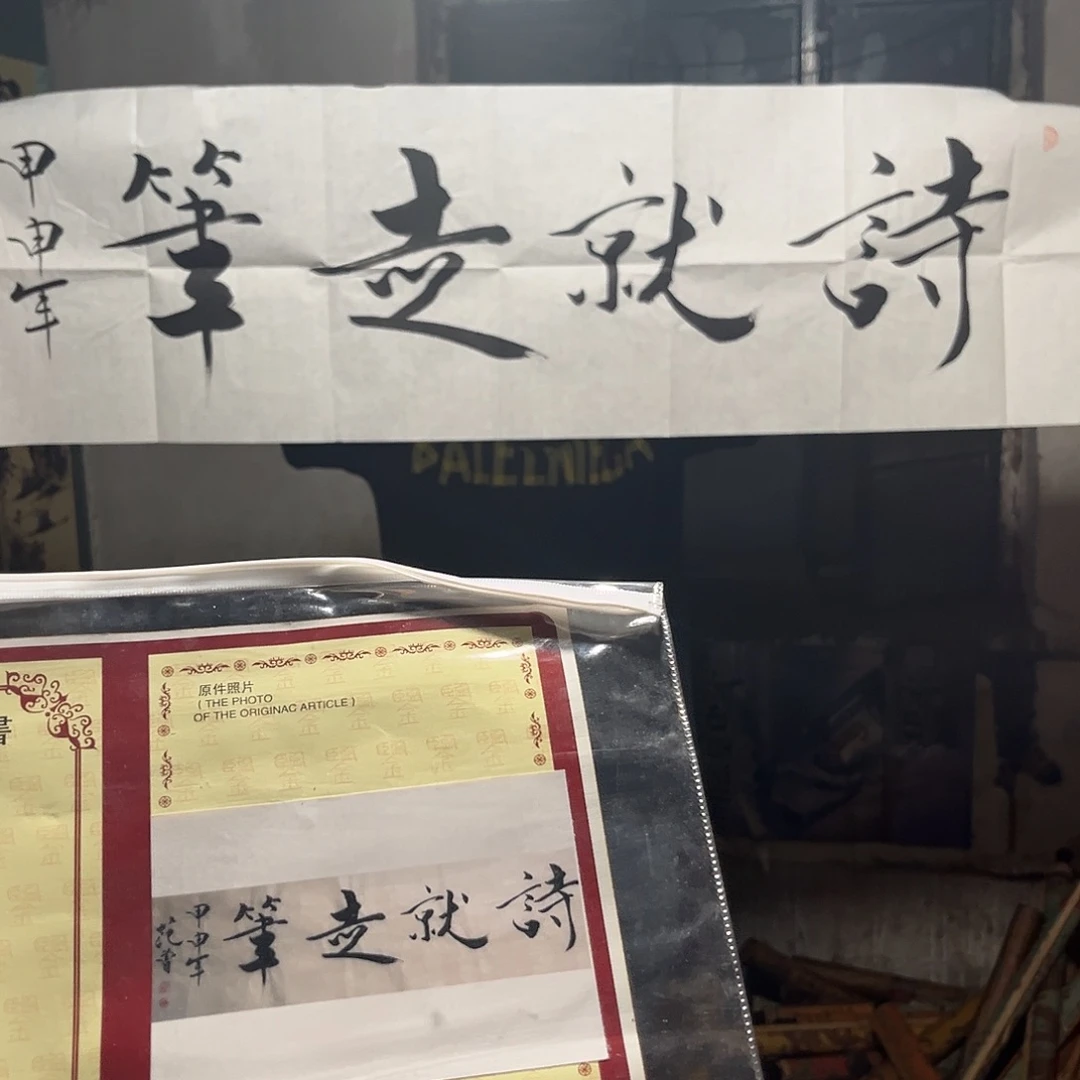 詩就走筆
甲申年
書
原件照片
( THE PHOTO
OF THE ORIGINAC ARTICLE )
詩就走筆
甲申年
范曾